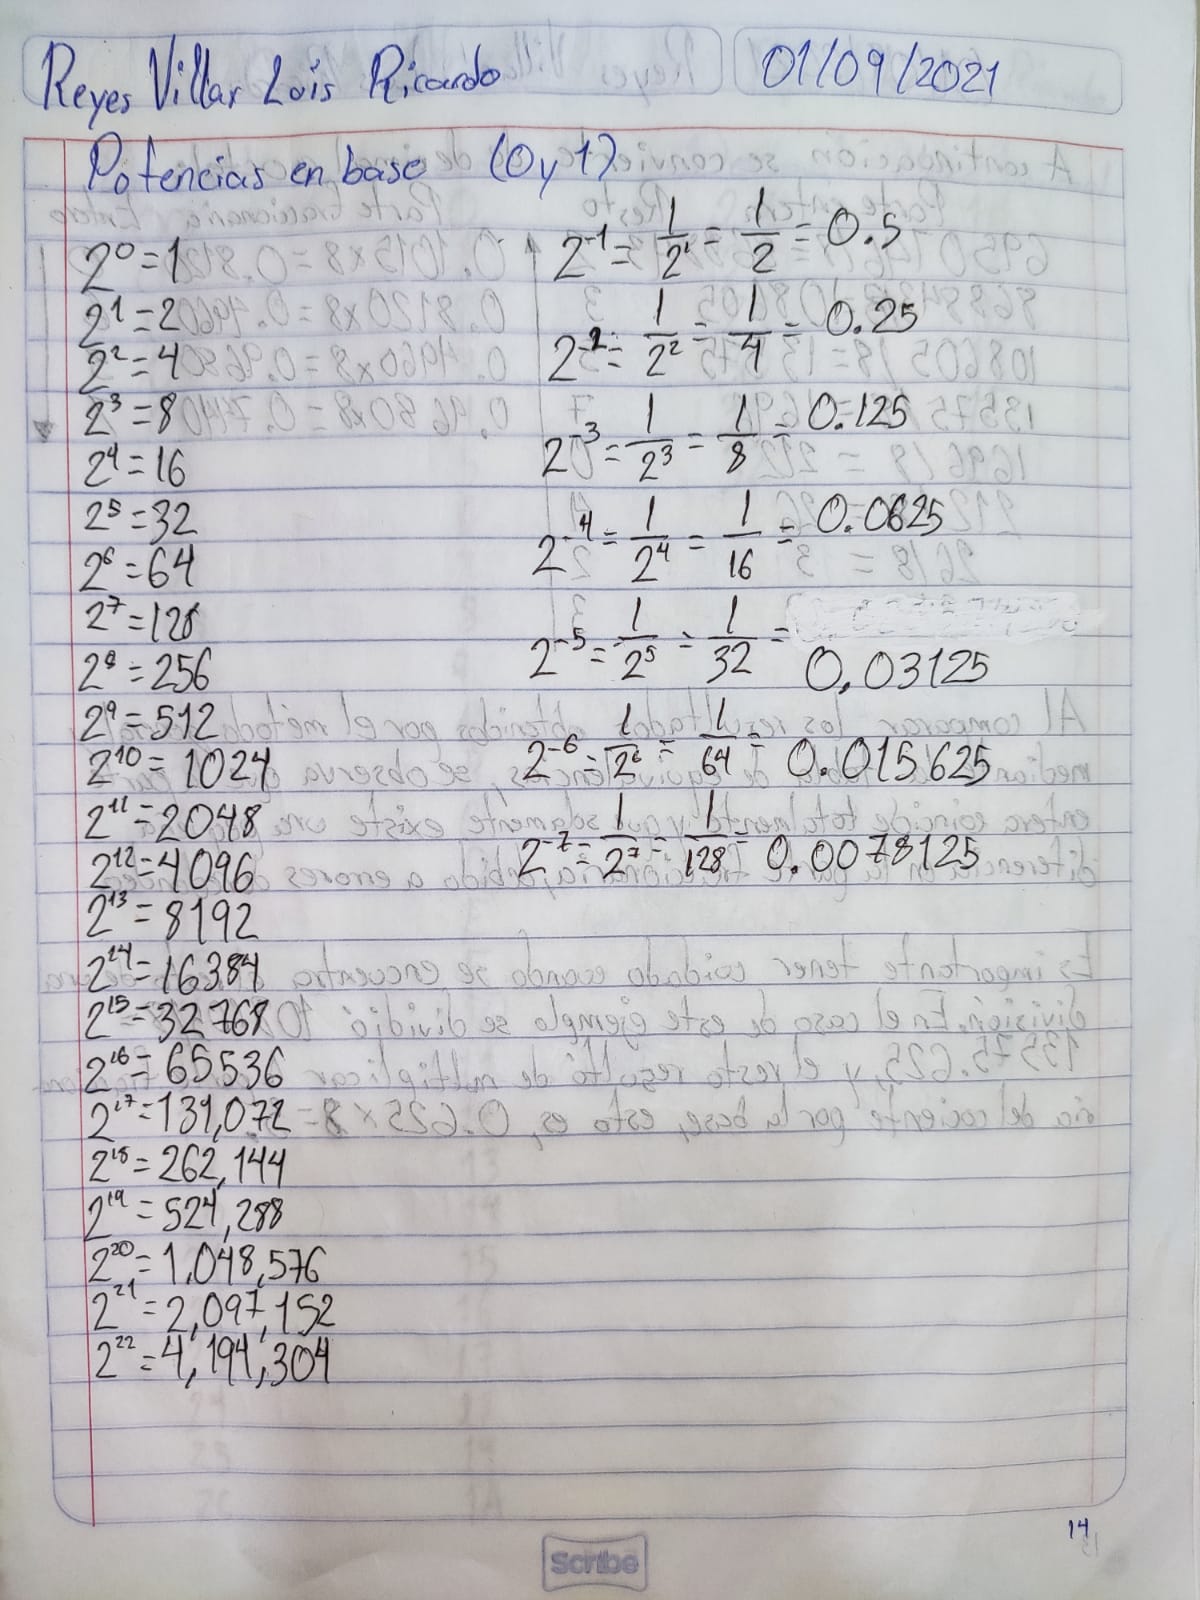 Reyes Villar Luis Ricardo
01/09/2021
Potencias en base (0 y 1)
2⁰ = 1
2¹ = 2
2² = 4
2³ = 8
2⁴ = 16
2⁵ = 32
2⁶ = 64
2⁷ = 128
2⁸ = 256
2⁹ = 512
2¹⁰ = 1024
2¹¹ = 2048
2¹² = 4096
2¹³ = 8192
2¹⁴ = 16384
2¹⁵ = 32768
2¹⁶ = 65536
2¹⁷ = 131,072
2¹⁸ = 262,144
2¹⁹ = 524,288
2²⁰ = 1,048,576
2²¹ = 2,097,152
2²² = 4,194,304
2⁻¹ = 1/2¹ = 1/2 = 0.5
2⁻² = 1/2² = 1/4 = 0.25
2⁻³ = 1/2³ = 1/8 = 0.125
2⁻⁴ = 1/2⁴ = 1/16 = 0.0625
2⁻⁵ = 1/2⁵ = 1/32 =
0.03125
2⁻⁶ = 1/2⁶ = 1/64 = 0.015625
2⁻⁷ = 1/2⁷ = 1/128 = 0.0078125
14
Scribe